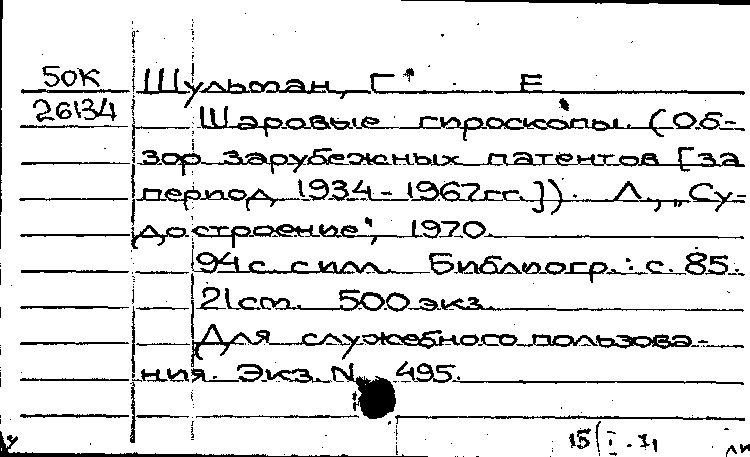 50К Шульман, Г. Е
26134 Шаровые гироскопы. (Об-
зор зарубежных патентов [за
период 1934-1967гг.]). Л., „Су-
достроение", 1970.
94 с. с илл. Библиогр.: с. 85.
21 см. 500 экз.
Для служебного пользова-
ния. Экз. № 495.
15/I.71